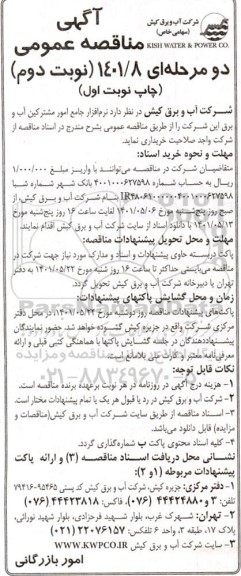 شرکت آب و برق کیش
(سهامی خاص)
KISH WATER & POWER CO.
آگهی
مناقصه عمومی
دو مرحله‌ای ۱۴۰۱/۸ (نوبت دوم)
(چاپ نوبت اول)
شرکت آب و برق کیش در نظر دارد نرم‌افزار جامع امور مشترکین آب و
برق این شرکت را از طریق مناقصه عمومی بشرح مندرج در اسناد مناقصه از
شرکت واجد صلاحیت خریداری نماید.
مهلت و نحوه خرید اسناد:
متقاضیان شرکت در مناقصه می‌توانند با واریز مبلغ ۱/۰۰۰/۰۰۰
ریال به حساب شماره ۴۰۰۱۰۰۰۶۲۷۵۹۸ بانک شهر شماره شبا
بنام شرکت آب و برق کیش، از
صبح روز پنج‌شنبه مورخ ۱۴۰۱/۰۵/۰۶ لغایت ساعت ۱۶ روز پنج‌شنبه مورخ
۱۴۰۱/۰۵/۱۳ با دانلود اسناد از سایت شرکت آب و برق کیش اقدام نمایند.
مهلت و محل تحویل پیشنهادات مناقصه:
پاکت دربسته حاوی پیشنهادات و اسناد و مدارک مورد نیاز جهت شرکت در
مناقصه می‌بایستی حداکثر تا ساعت ۱۶ روز شنبه مورخ ۱۴۰۱/۰۵/۲۲ به دفتر
تهران یا دبیرخانه شرکت آب و برق کیش تحویل گردد.
زمان و محل گشایش پاکتهای پیشنهادات:
پاکت‌های پیشنهادات مناقصه روز دوشنبه مورخ در محل دفتر
مرکزی شرکت واقع در جزیره کیش گشوده خواهد شد. حضور نمایندگان
پیشنهاددهندگان در جلسه گشایش پاکتها با هماهنگی کتبی قبلی و ارائه
معرفی‌نامه معتبر و کارت ملی بلامانع است.
نکات قابل توجه:
۱- هزینه درج آگهی در روزنامه در هر نوبت برعهده برنده مناقصه است.
۲- شرکت آب و برق کیش در رد یا قبول هر یک یا تمام پیشنهادات مختار است.
۳- اسناد مناقصه از طریق سایت شرکت آب و برق کیش(مناقصات و
مزایده) قابل دانلود می‌باشد.
۴- کلیه اسناد محتوی پاکت ب شماره‌گذاری گردد.
نشانی محل دریافت اسناد مناقصه (۳) و ارائه پاکت
پیشنهادات مربوطه (۱و ۲):
۱- دفتر مرکزی: جزیره کیش، شرکت آب و برق کیش کد پستی ۹۵۴۶۵-۷۹۴۱۶
تلفن: ۳ و ۴۴۴۲۴۸۸۰ (۰۷۶)، فاکس: ۴۴۴۲۳۸۱۸ (۰۷۶)
۲- تهران: شهرک غرب، بلوار شهید فرحزادی، بلوار شهید نورانی،
پلاک ۱۷، طبقه ۳، واحد ۶ تلفکس: ۲۲۰۷۶۱۵۷ (۰۲۱)
۳- سایت شرکت آب و برق کیش WWW.KWPCO.IR
امور بازرگانی
۰۲۱-۸۸۳۴۹۶۷۰